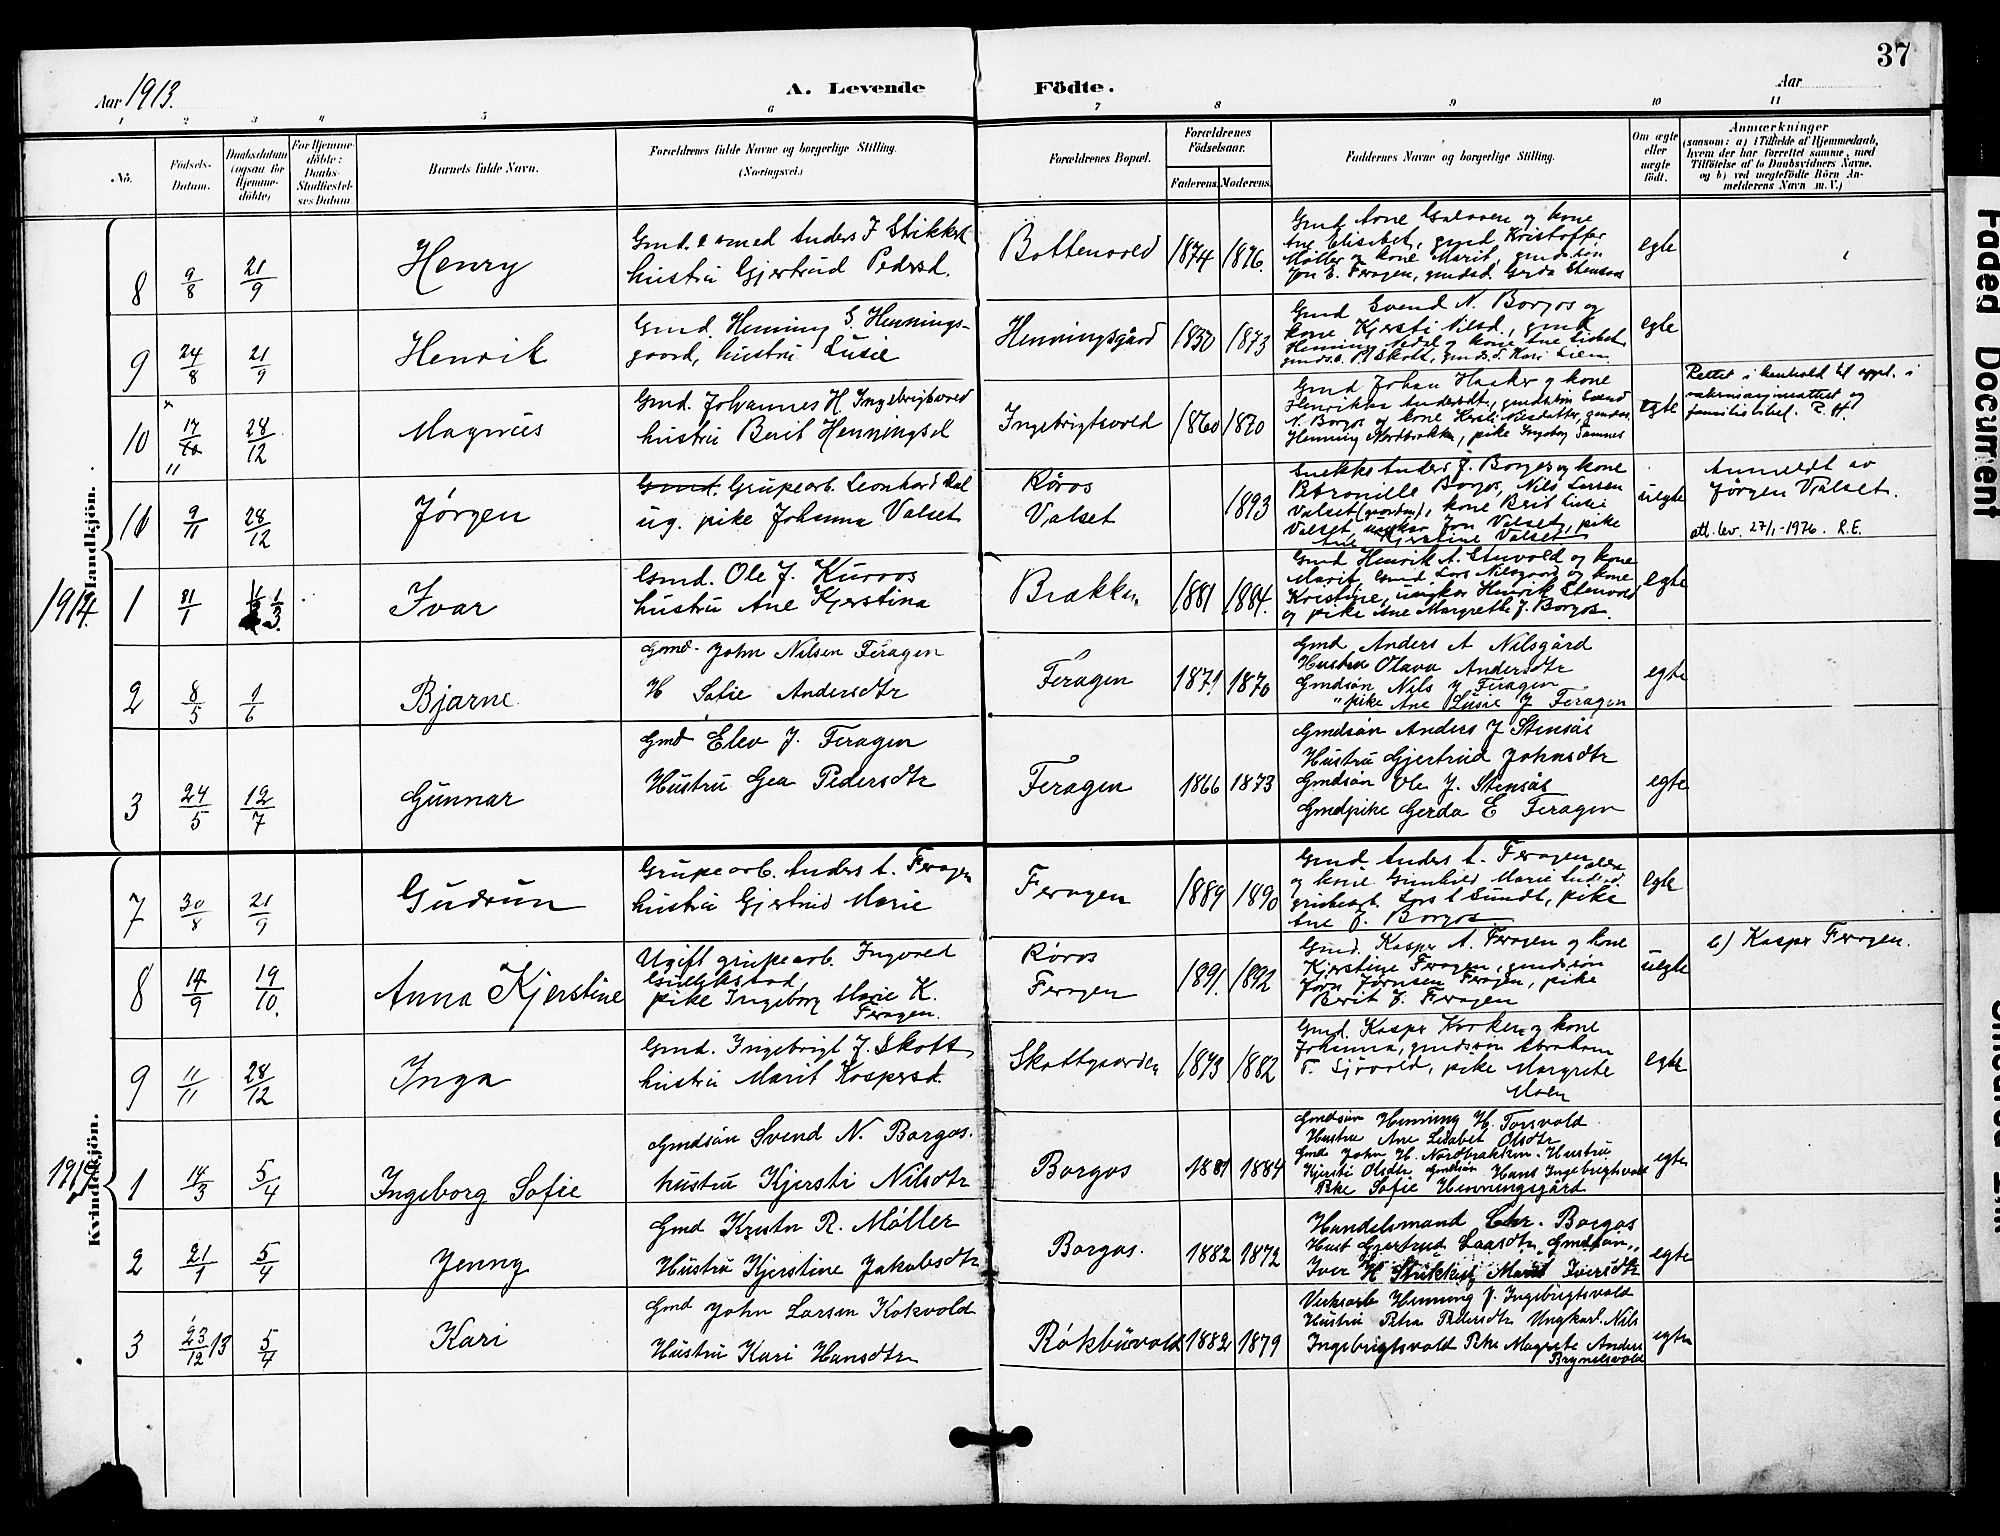 37
Aar 1913.
A. Levende Födte.
Aar
1 2 3 4 5 6 7 8 9 10 11
No.
Födsels-Datum.
Daabsdatum (ogsaa for Hjemme-döbte)
For Hjemme-döbte: Daabs-Stadfæstel-ses Datum
Barnets fulde Navn.
Forældrenes fulde Navne og borgerlige Stilling. (Næringsvei.)
Forældrenes Bopæl.
Forældrenes Födselsaar.
Faderens. Moderens.
Faddernes Navne og borgerlige Stilling.
Om ægte eller uægte födt.
Anmærkninger
(saasom: a) i Tilfælde af Hjemmedaab,
hvem der har forrettet samme, med
Tilföielse af to Daabsvidners Navne.
og b) ved uægtefödte Börn An-
melderens Navn m. V.)
Mandkjön.
8 9/8 21/9 Henry
Gmd. Anders J Strikkst
hustru Gjertrud Pedersd.
Bottenvold 1874 1876.
Gmd Arne Galaaen og kone
Ane Elisabet, gmd Kristoffer
Møller og kone Marit, gmdssøn
Jon E. Feragen, gmdsd. Gerda Stensaas
egte
9 24/8 21/9 Henrik
Gmd. Henning S. Hennings-
gaard, hustru Lusie
Henningsgård 1830 1873
Gmd Svend N. Borgos og
kone Kjersti Nilsd., gmd
Henning Nedal og kone Ane Lisbet
gmdss. P. Skott, gmds.d. Kari Lien
egte
10 17/10 28/12 Magnus
Gmd. Johannes H. Ingebrigtsvold
hustru Berit Henningsd
Ingebrigtsvold 1860 1870
Gmd Johan Haaker og kone
Henrikka Andersdt., gmdssøn Svend
N. Borgos og kone Kersti Nilsdatter, gmdssøn
Henning Nordbrakken, pike Ingeborg Tamnes
egte
Rettet i henhold til oppl. i
vaksinasjonsattest og
familiebibel. R. H.
11 9/11 28/12 Jørgen
Gmd. Grupearb. Leonhard Dal
ug. pike Johanna Valset
Røros
Valset 1893
Snekker Anders J. Borgos og kone
Petronille Borgos, Nils Larsen
Valset (gaarden), kone Berit Lusie
Valset, ungkar Jon Valset, pike
Ane Kjerstine Valset
uegte
Anmeldt av
Jørgen Valset.
att. lev. 27/1-1976. R.E.
1914.
1 31/1 1/3 Ivar
Gmd. Ole J. Kuraas
hustru Ane Kjerstina
Brakken 1881 1884.
Gmd Henrik A. Stenvold og kone
Marit, Gmd Lars Nilsgaard og kone
Kristine, ungkar Henrik Stenvold
og pike Ane Margrethe J. Borgos.
egte
2 8/5 1/6 Bjarne
Gmd. John Nilsen Feragen
H Sofie Andersdtr
Feragen 1871 1870
Gmd Anders A Nilsgård
Hustru Olava Andersdtr
Gmdsøn Nils J Feragen
" pike Ane Lusie J Feragen
egte
3 24/5 12/7 Gunnar
Gmd Elev J. Feragen
Hustru Gea Pedersdtr
Feragen 1866 1873
Gmdsøn Anders J Stensås
Hustru Gjertrud Johnsdtr
Gmdsøn Ole J. Stensås
Gmdpike Gerda E Feragen
egte
Kvindekjön.
7 30/8 21/9 Gudrun
Grupearb. Anders A. Feragen
hustru Gjertrud Marie
Feragen 1889 1890
Gmd. Anders A. Feragen
og kone Gunhild Marie
grubearb. Lars L Sundt, pike
Ane J. Borgos
egte
8 14/9 19/10. Anna Kjerstine
Ugift grupearb. Ingvald
pike Ingeborg Marie K.
Feragen.
Røros
Feragen 1891. 1892
Gmd. Kasper A. Feragen og kone
Kjerstine Feragen, gmdssøn
Jørn Jørnsen Feragen, pike
Berit J. Feragen
uegte
b) Kasper Feragen.
9 11/11 28/12 Inga
Gmd. Ingebrigt J. Skott
hustru Marit Kaspersd.
Skottgaarden 1873 1882
Gmd. Kasper Kroken og kone
Johanna, gmdssøn Abraham
T. Sjøvold, pike Margrete
Moen
egte
1914
1 14/3 5/4 Ingeborg Sofie
Gmdsøn Svend N. Borgos.
hustru Kjersti Nilsdtr
Borgos 1881 1884
Gmdsøn Henning H. Torsvold
Hustru Ane Lisabet Olsdtr
Gmd John H. Nordbrakken. Hustru
Kjersti Olsdtr Gmdsøn Hans Ingebrigtsvold
Pike Sofie Henningsgård
egte
2 21/1 5/4 Jenny
Gmd Krstn R. Møller
Hustru Kjerstine Jakobsdtr
Borgos. 1882 1872
Handelsmand Chr. Borgos
Hust Gjertrud Larsdtr Gmdsøn
Iver H Strikkest Marit Iversdtr
egte
3 23/12 13 5/4 Kari
Gmd John Larsen Kokvold
Hustru Kari Hansdtr
Røkbuvold 1882 1879
Verksarb Henning J. Ingebrigtsvold
Hustru Petra Pedersdtr Ungkarl. Nils
Ingebrigtsvold Pike Magrete Anders
Brynildsvold
egte
Faded Document